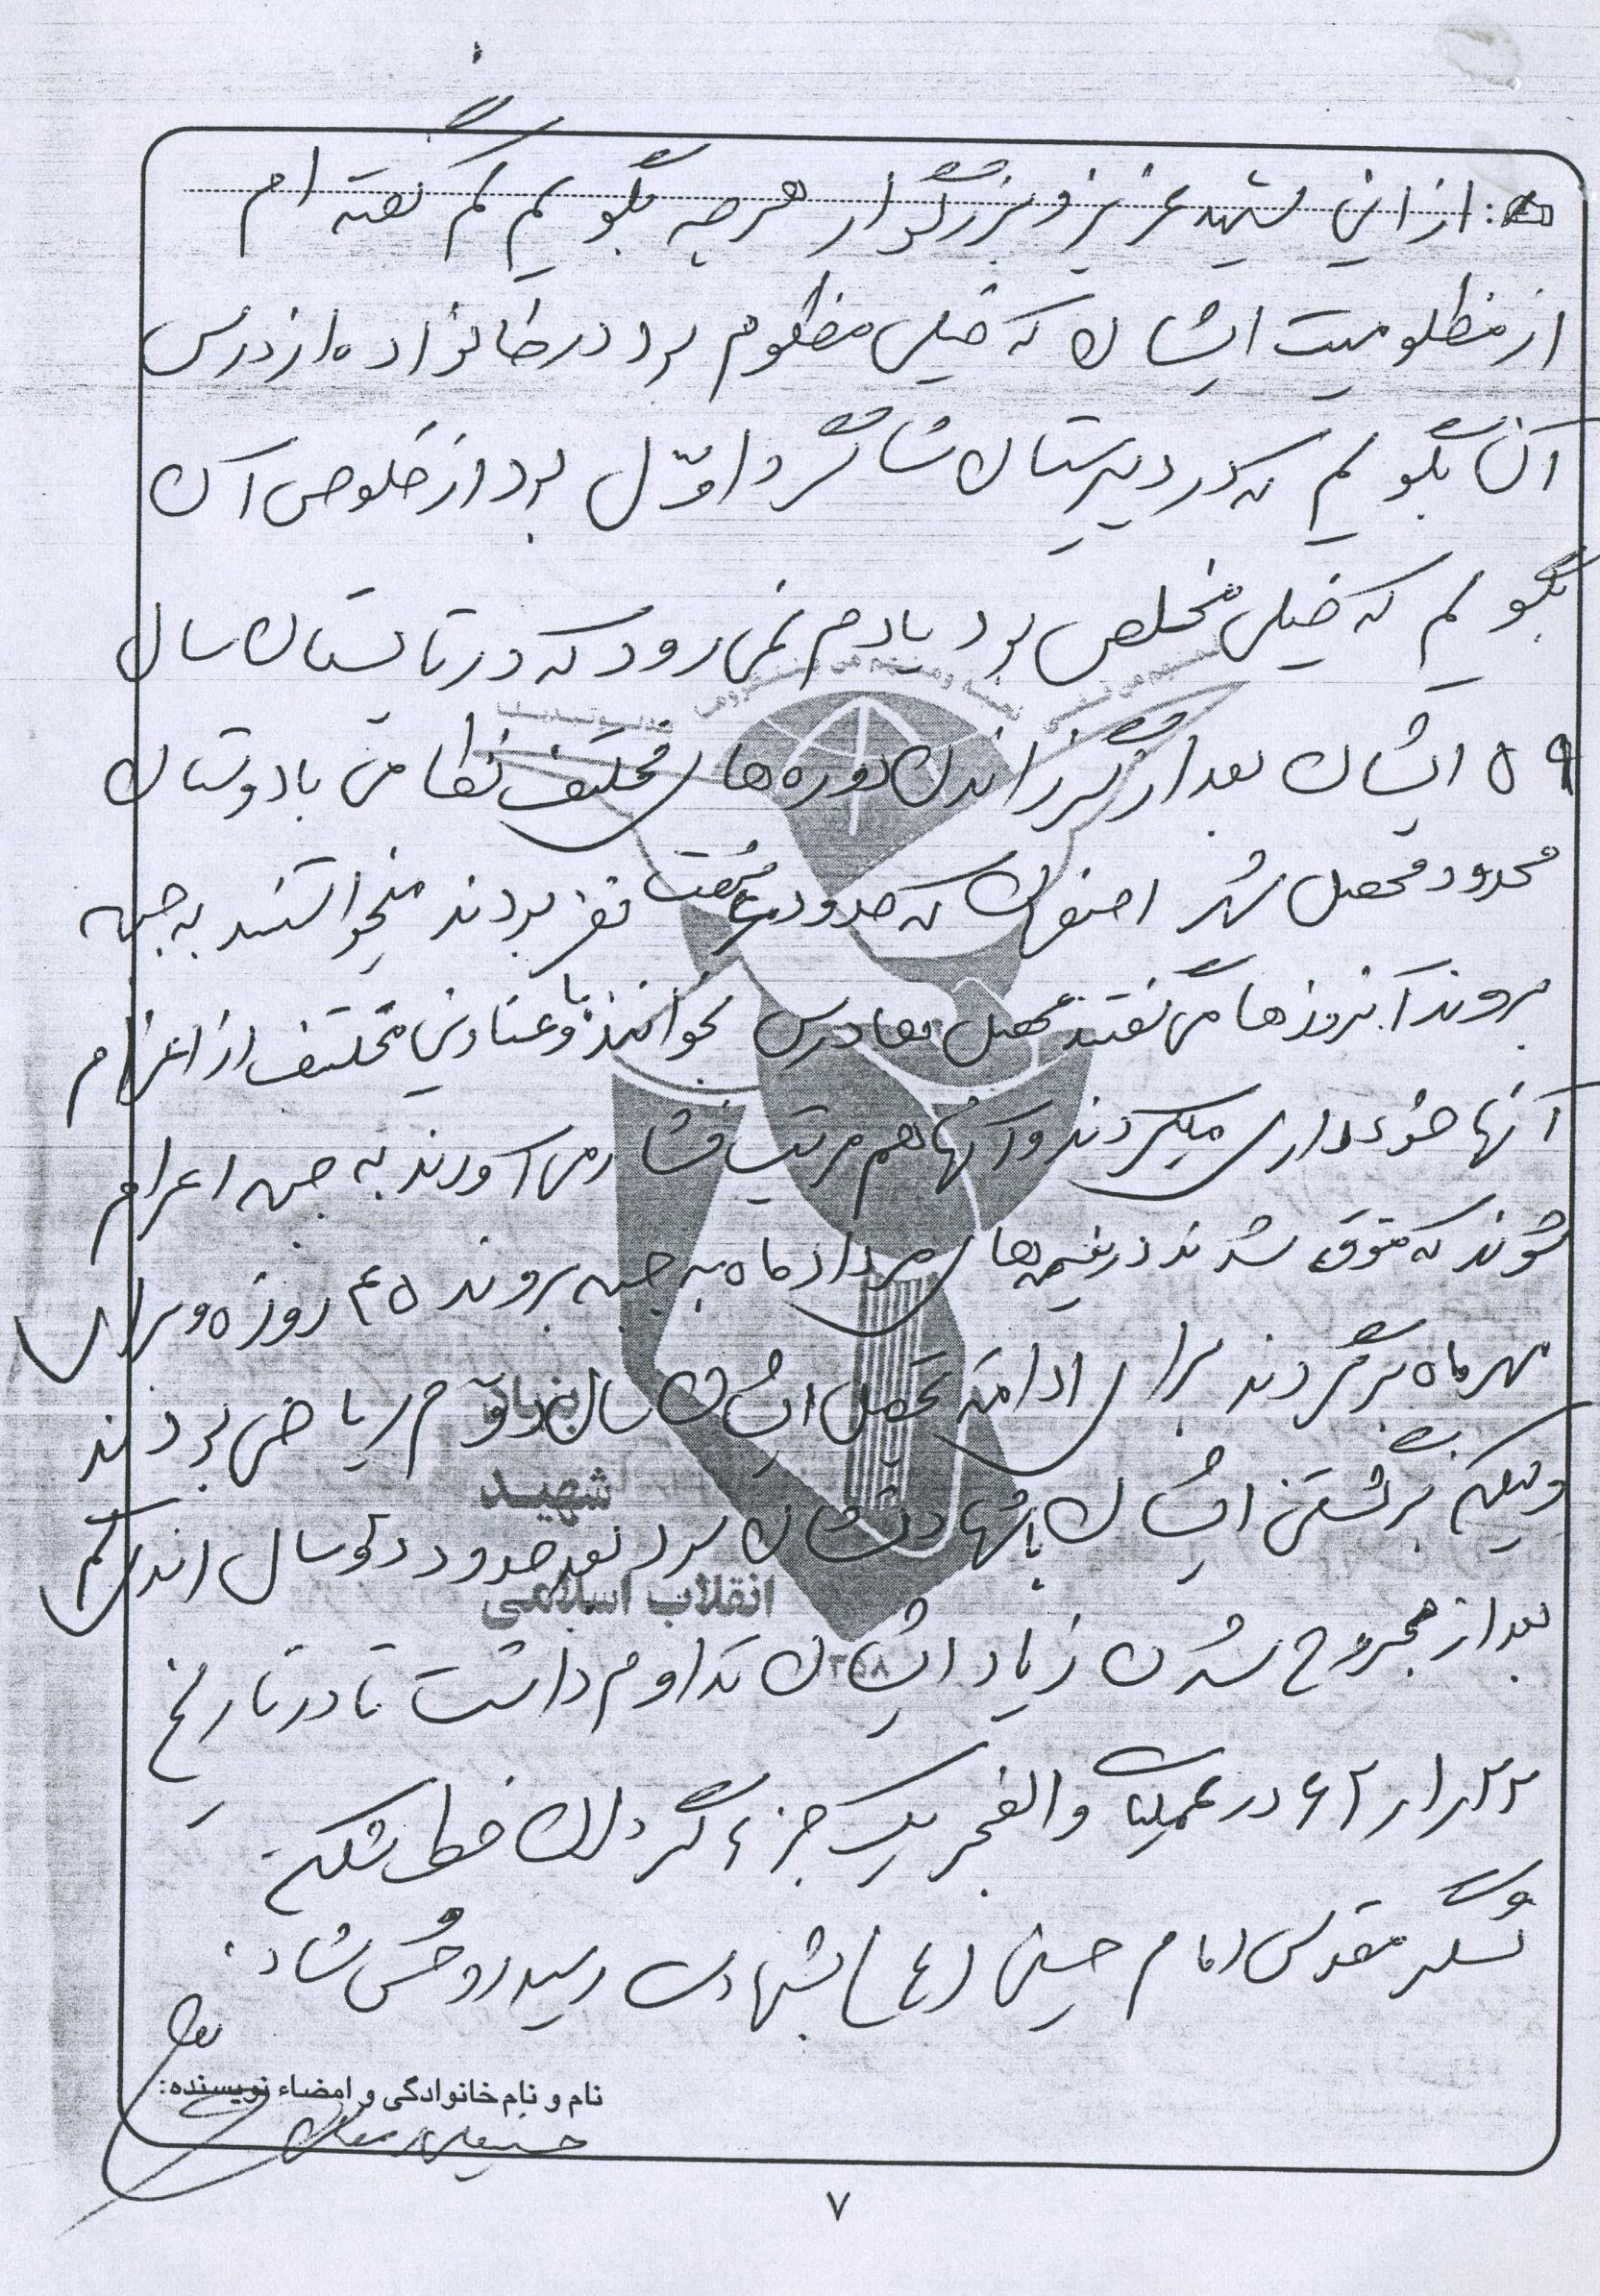 از این شهید عزیز و بزرگوار هر چه بگویم کم گفته ام
از مظلومیت ایشان که خیلی مظلوم بود در خانواده از درس
آن بگویم که در دبیرستان شاگرد اوّل بود از خلوص آن
بگویم که خیلی مخلص بود یادم نمی رود که در تابستان سال
۵۹ ایشان بعد از گذراندن دوره های مختلف نظامی با دوستان
محدود محصل شهر اصفهان که حدود هفت نفر بودند میخواستند به جبهه
بروند آنروزها می گفتند محصل ها درس بخوانند و با عناوین مختلف از اعزام
آنها خودداری میکردند و آنها هم مرتب فشار می آورند به جبهه اعزام
شوند که موفق شدند در نیمه های مرداد ماه به جبهه بروند ۴۵ روزه و برای
مهر ماه برگردند برای ادامه تحصیل ایشان سال دوّم ریاضی بودند
ولیکن برگشتن ایشان با شهادتشان بود بعد حدود دو سال اندی کم
بعد از مجروح شدن زیاد ایشان تداوم داشت تا در تاریخ
۶۲ در عملیات والفجر یک جزء گردان خط شکن
لشگر مقدس امام حسین (ع) بشهادت رسید روحش شاد
بنیاد
شهید
انقلاب اسلامی
۱۳۵۸
نام و نام خانوادگی و امضاء نویسنده:
۷